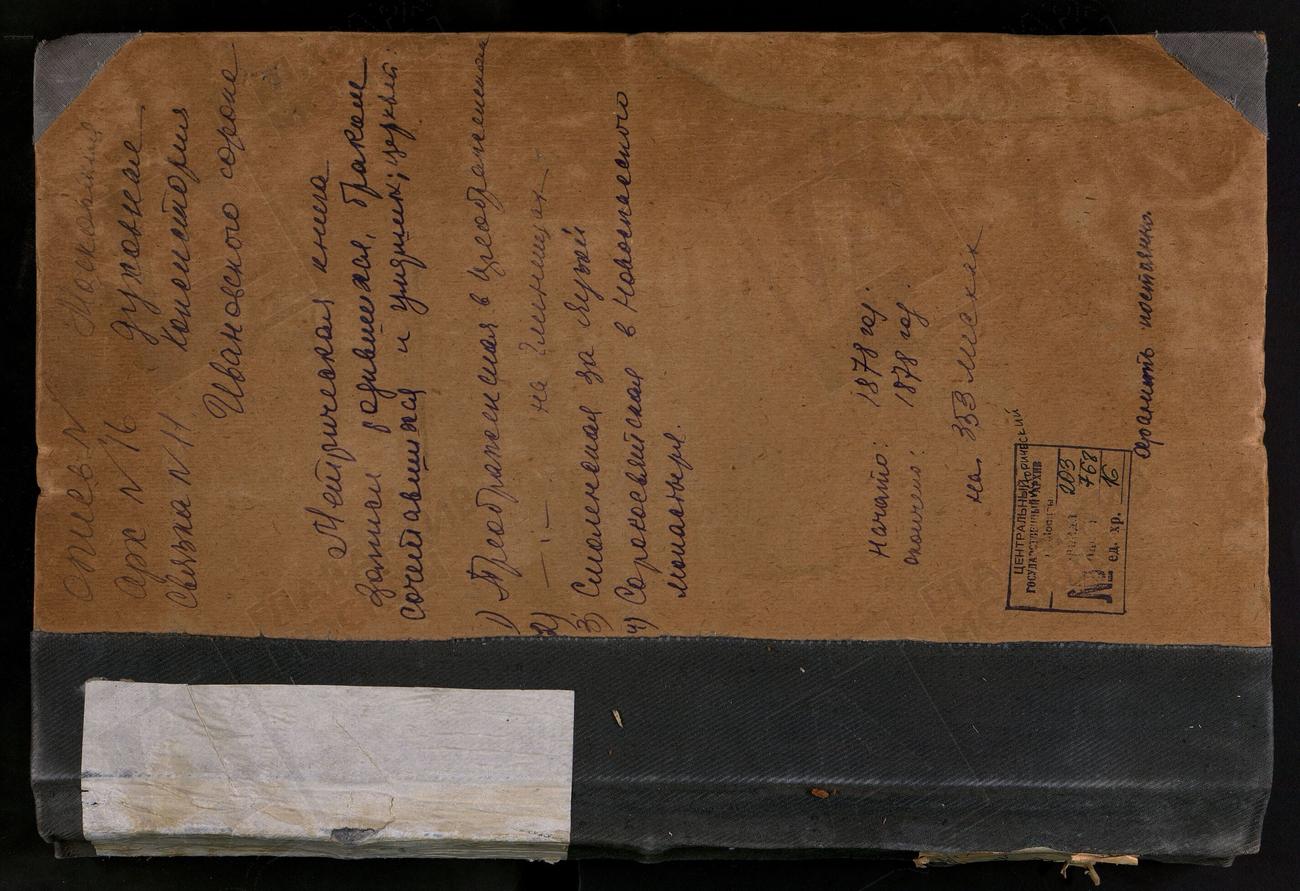 Опись №
Арх № 16
Связка № 11
Московская
духовная
консистория
Ивановского сорока
Метрическая книга
записи родившихся, браком
сочетавшихся и умерших; церквей:
1) Преображенская в Преображенском
2) —"— на Глинищах
3) Смоленская за Яузой
4) Сорокосвятская в Новоспасского
монастыря.
Начато: 1878 год.
окончено: 1878 год.
на 353 листах
ЦЕНТРАЛЬНЫЙ ИСТОРИЧЕСКИЙ
ГОСУДАРСТВЕННЫЙ АРХИВ
г. Москвы
203
768
№ ед. хр. 16
хранить постоянно.